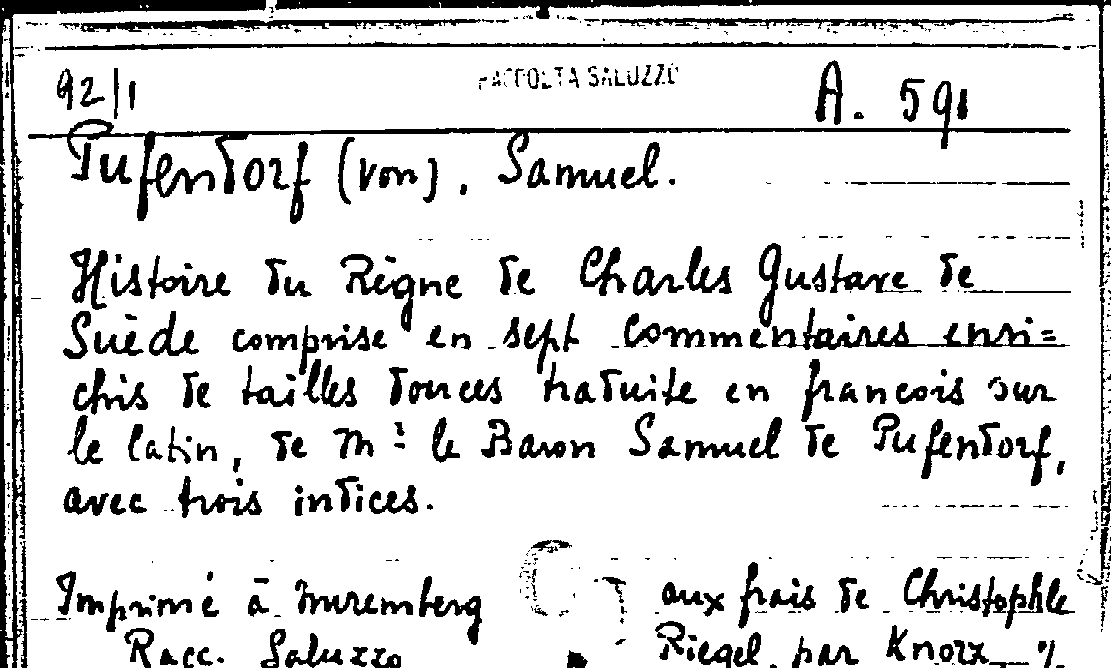 92/1 RACCOLTA SALUZZO A. 591
Pufendorf (von), Samuel.
Histoire du Règne de Charles Gustave de
Suède comprise en sept commentaires enri=
chis de tailles douces traduite en francois sur
le latin, de Mr le Baron Samuel de Pufendorf,
avec trois indices.
Imprimé à Nuremberg aux frais de Christophle
Racc. Saluzzo Riegel, par Knorz %